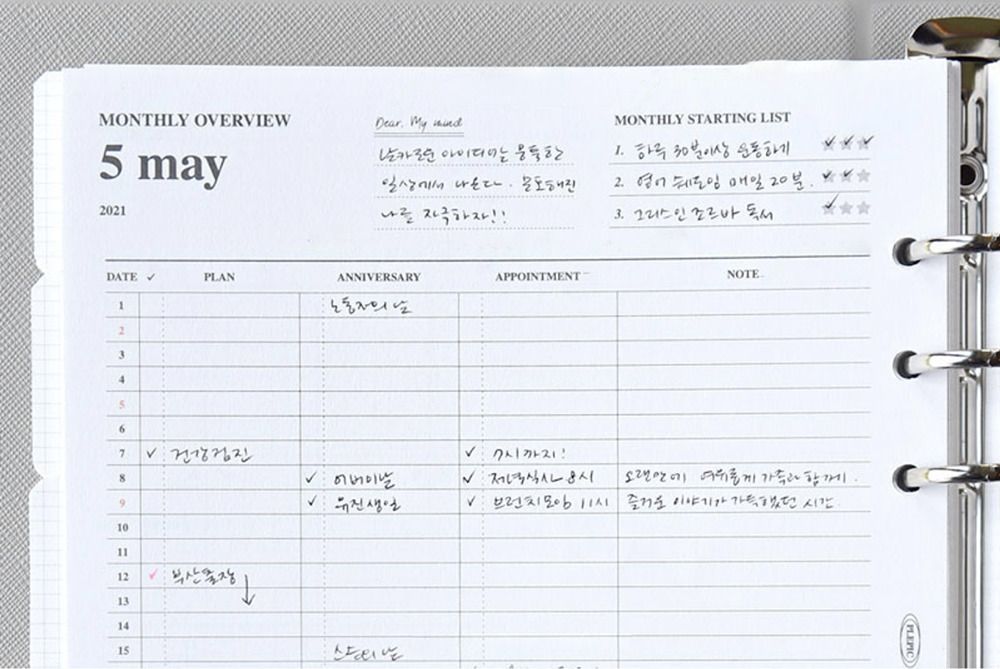 MONTHLY OVERVIEW
5 may
2021
Dear. My mind
날카로운 아이디어란 뭉툭한
일상에서 나온다. 문포해진
나를 자극하자!!
MONTHLY STARTING LIST
1. 하루 30분이상 운동하기
2. 영어 쉐도잉 매일 20분.
3. 그리스인 조르바 독서
DATE ✓ PLAN ANNIVERSARY APPOINTMENT NOTE
1 노동자의 날
2
3
4
5
6
7 ✓ 건강검진 ✓ 7시까지!
8 ✓ 어버이날 ✓ 저녁식사 8시 오랜만에 여유롭게 가족과 함께.
9 ✓ 유진생일 ✓ 브런치모임 11시 즐거운 이야기가 가득했던 시간.
10
11
12 ✓ 부산출장
13
14
15 스승의 날
PLEPIC